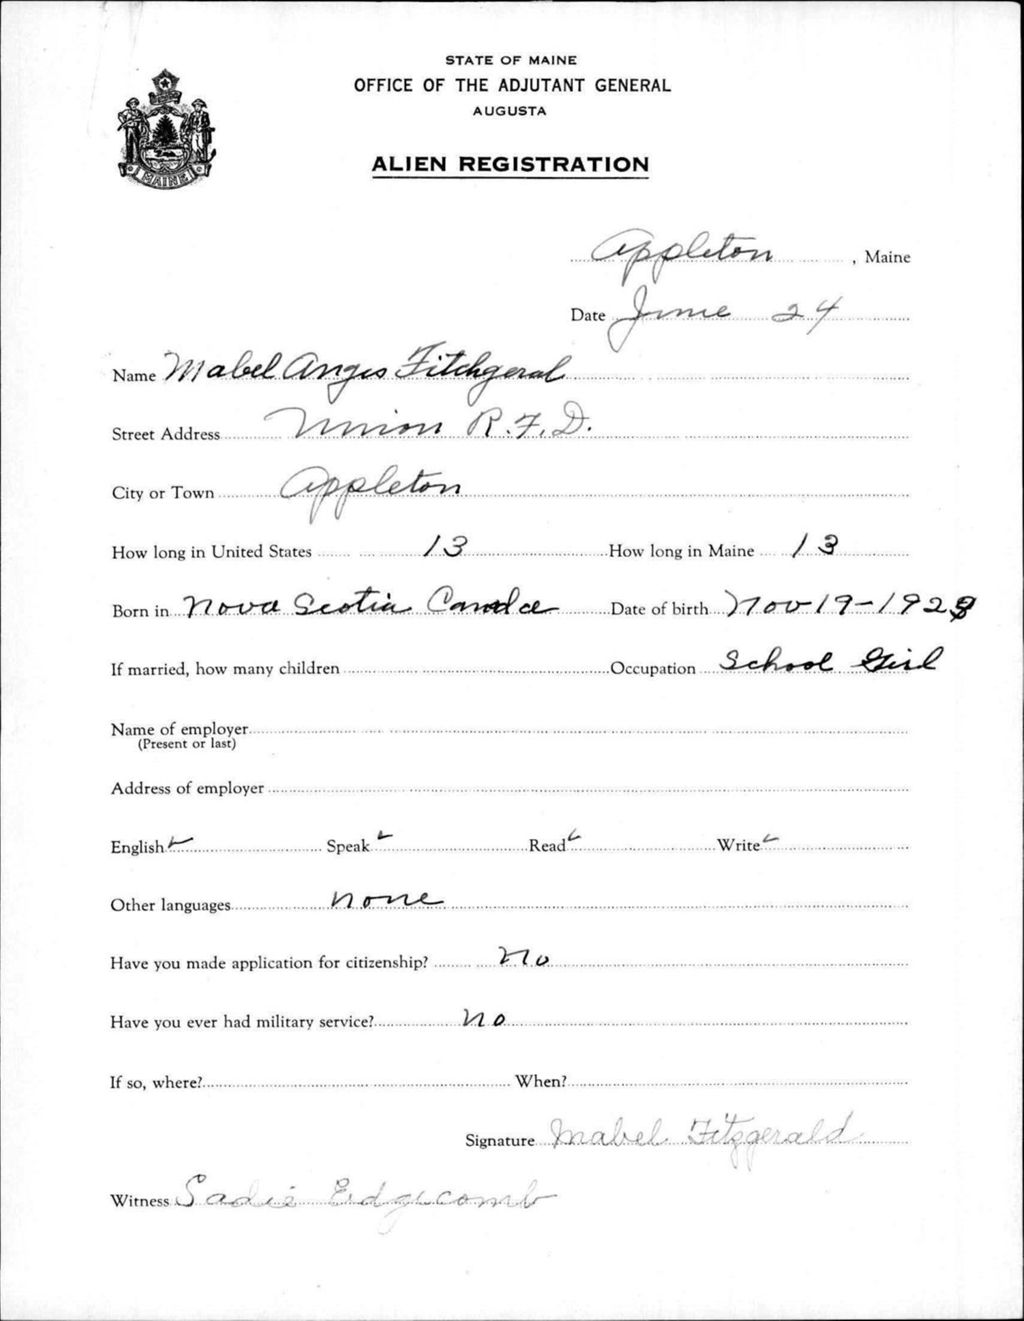 STATE OF MAINE
OFFICE OF THE ADJUTANT GENERAL
AUGUSTA
MAINE
ALIEN REGISTRATION
Appleton, Maine
Date June 24
Name Mabel Angis Fitchgeral
Street Address Union R.F.D.
City or Town Appleton
How long in United States 13 How long in Maine 13
Born in Nova Scotia Canada Date of birth Nov 19-192
If married, how many children Occupation School Girl
Name of employer
(Present or last)
Address of employer
English ✓ Speak ✓ Read ✓ Write ✓
Other languages none
Have you made application for citizenship? No
Have you ever had military service? no
If so, where? When?
Signature Mabel Fitzgerald
Witness Sadie Edgecomb